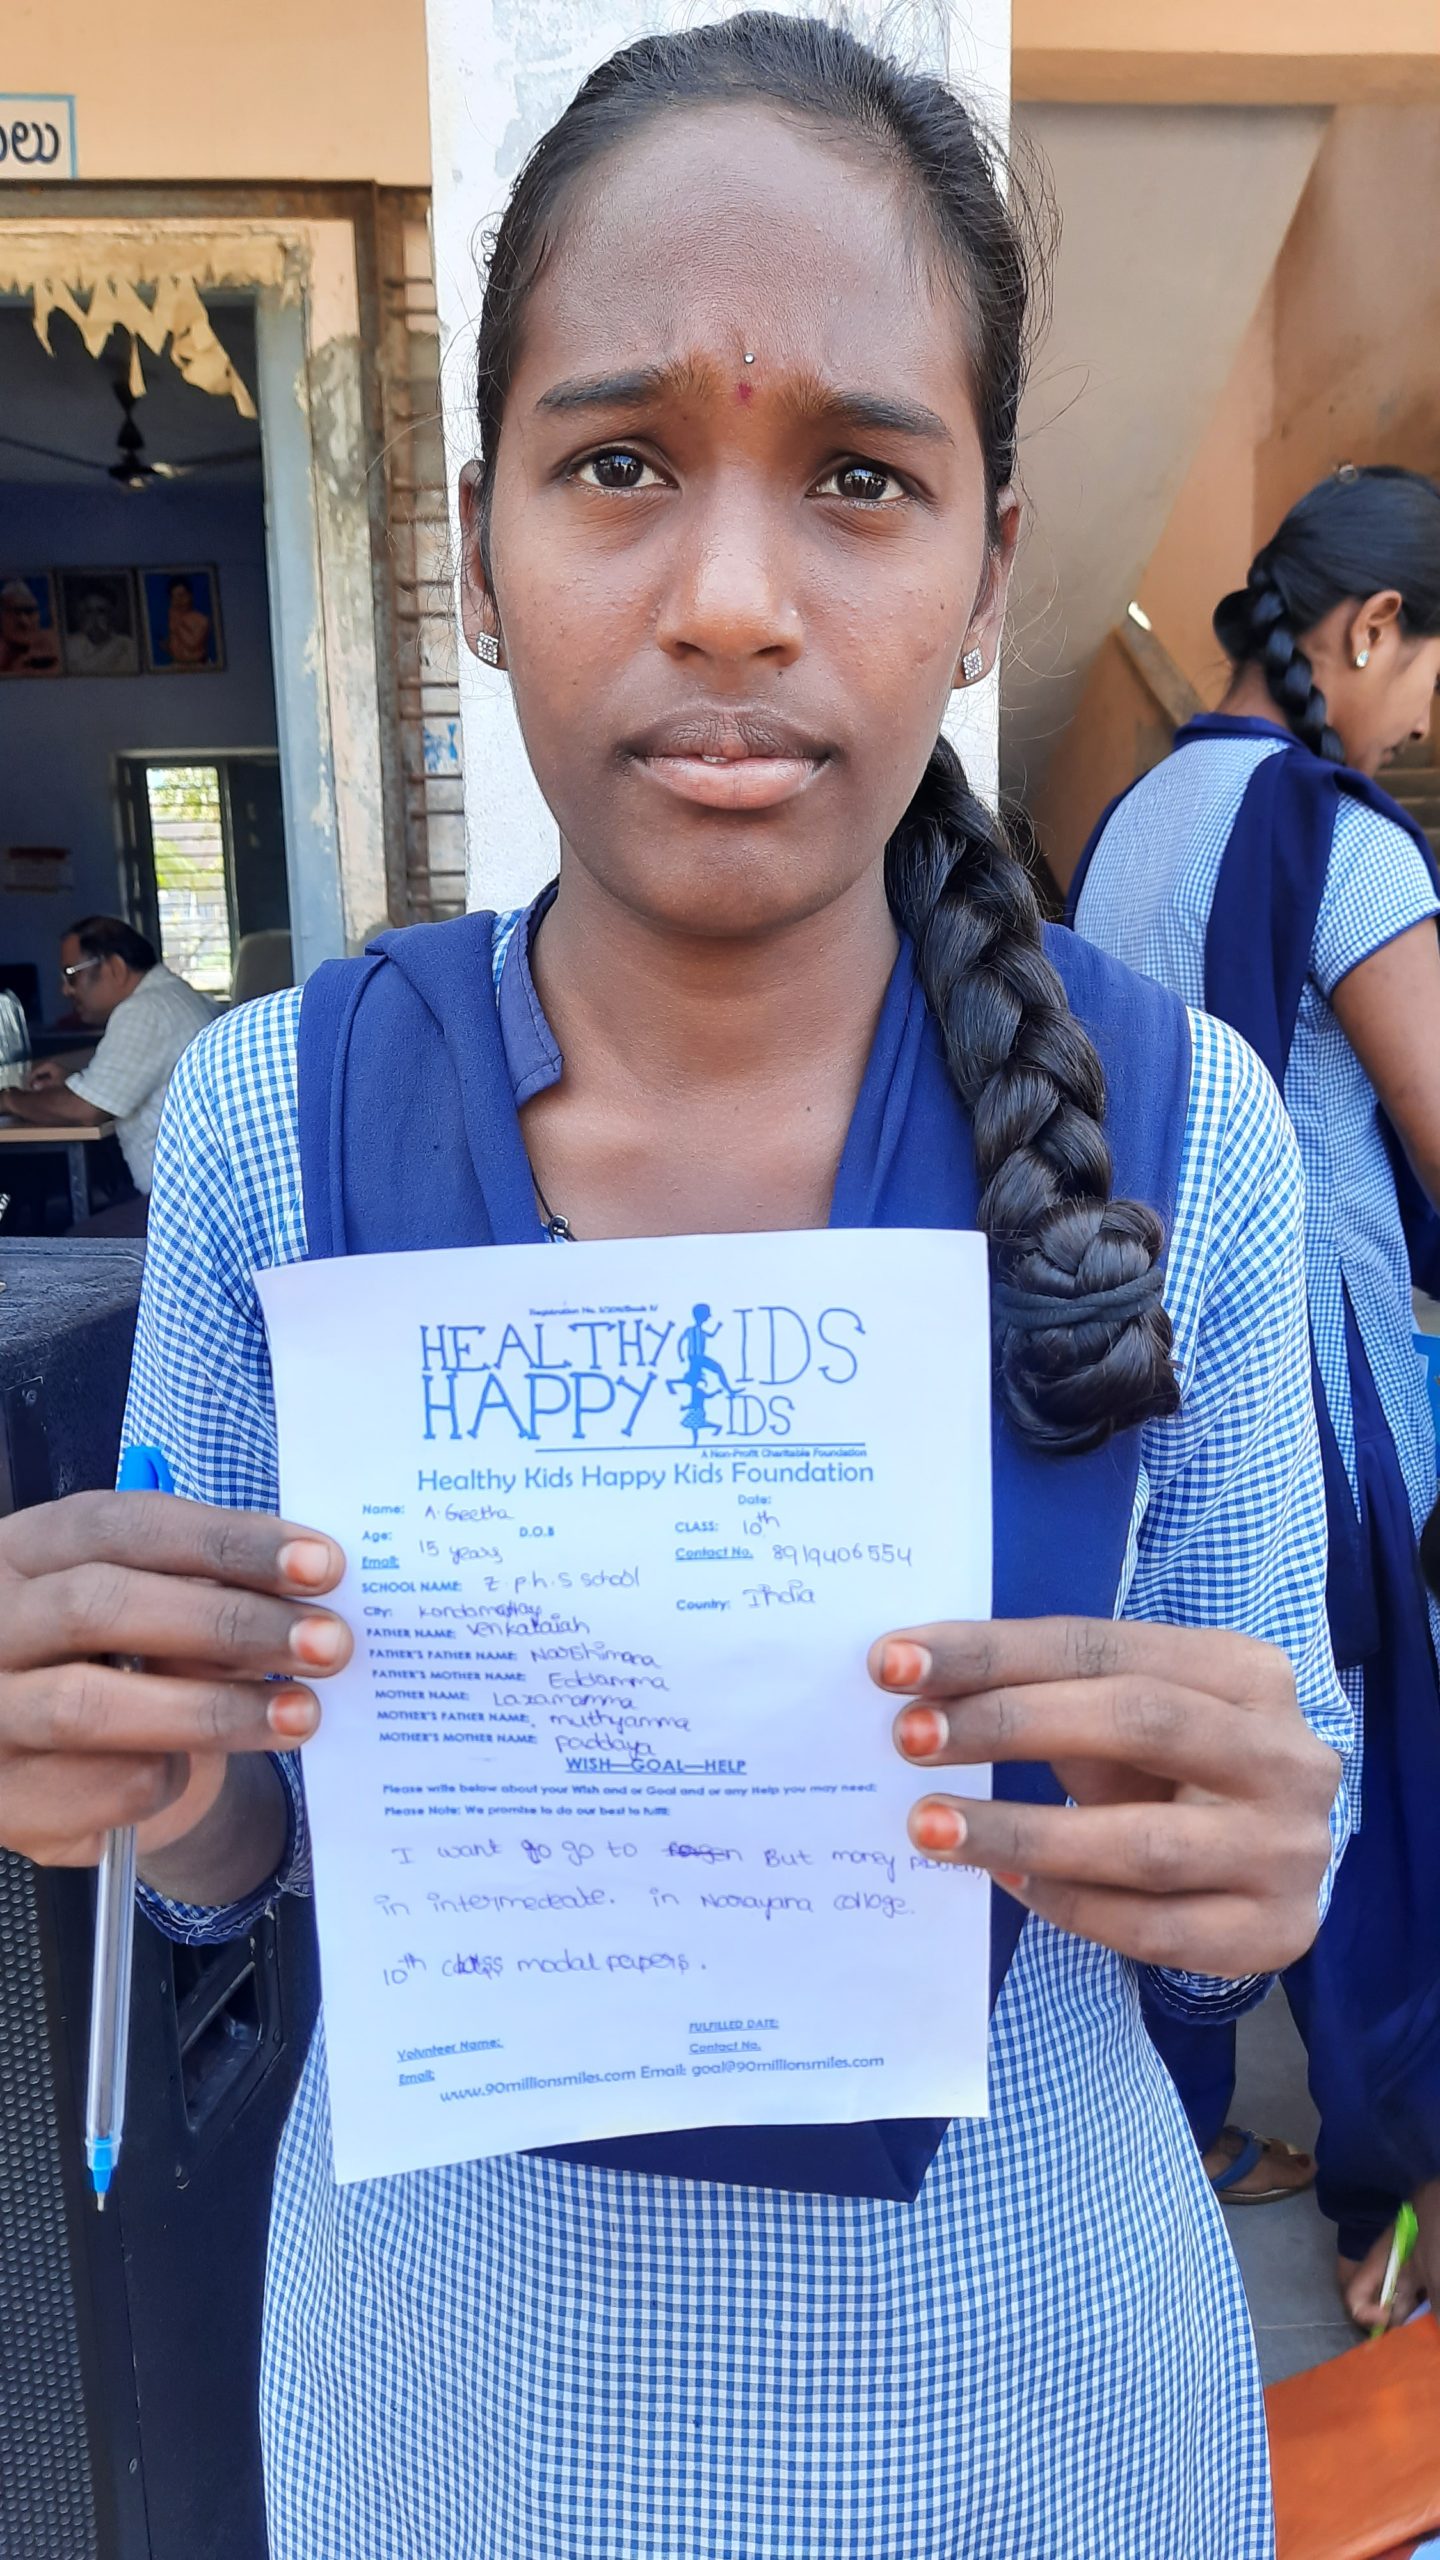 లు
HEALTHY KIDS
HAPPY KIDS
A Non-Profit Charitable Foundation
Healthy Kids Happy Kids Foundation
Name: A. Geetha Date:
Age: 15 years D.O.B CLASS: 10th
Email: Contact No. 8919406554
SCHOOL NAME: Z.p.h.s school
City: Country: India
FATHER NAME: Venkataiah
FATHER'S FATHER NAME:
FATHER'S MOTHER NAME: Eddamma
MOTHER NAME: Laxamamma
MOTHER'S FATHER NAME: muthyamma
MOTHER'S MOTHER NAME: paddaya
WISH—GOAL—HELP
Please write below about your Wish and or Goal and or any Help you may need:
Please Note: We promise to do our best to fulfill:
I want go go to But money problem
in intermedeate. in Narayana college.
10th class modal papers.
Volunteer Name: FULFILLED DATE:
Email: Contact No.
www.90millionsmiles.com Email: goal@90millionsmiles.com